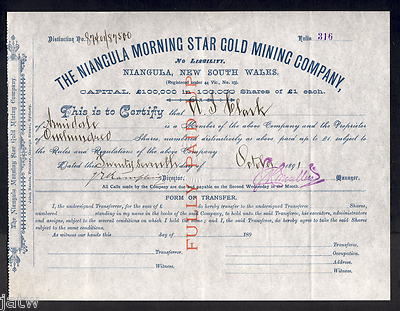 Distinguishing No. 87401/87500 No. 316
THE NIANGULA MORNING STAR GOLD MINING COMPANY,
NO LIABILITY.
NIANGULA, NEW SOUTH WALES.
CAPITAL £100,000 in 100,000 Shares of £1 each.
This is to Certify that Clark
of Armidale is a Member of the above Company and the Proprietor
of One hundred Share, numbered distinctively as above, paid up to £1 subject to
the Rules and Regulations of the above Company
Dated this Twenty seventh day of October 1891
Director. Manager.
All Calls made by the Company are due and payable on the Second Wednesday in the Month.
FORM OF TRANSFER.
I, the undersigned Transferror, for Value of £ do hereby transfer to the undersigned Transferree, Shares,
numbered standing in my name in the books of the said Company, to hold unto the said Transferree, his executors, administrators
and assigns, subject to the several conditions on which I held the same, and I, the undersigned Transferree, do hereby agree to take the said Shares,
subject to the same conditions.
As witness our hands this day of 189
Transferror.
Witness.
Transferree.
Occupation.
Address.
Witness.
FULLY PAID UP
The Niangula Morning Star Gold Mining Company.
jatw